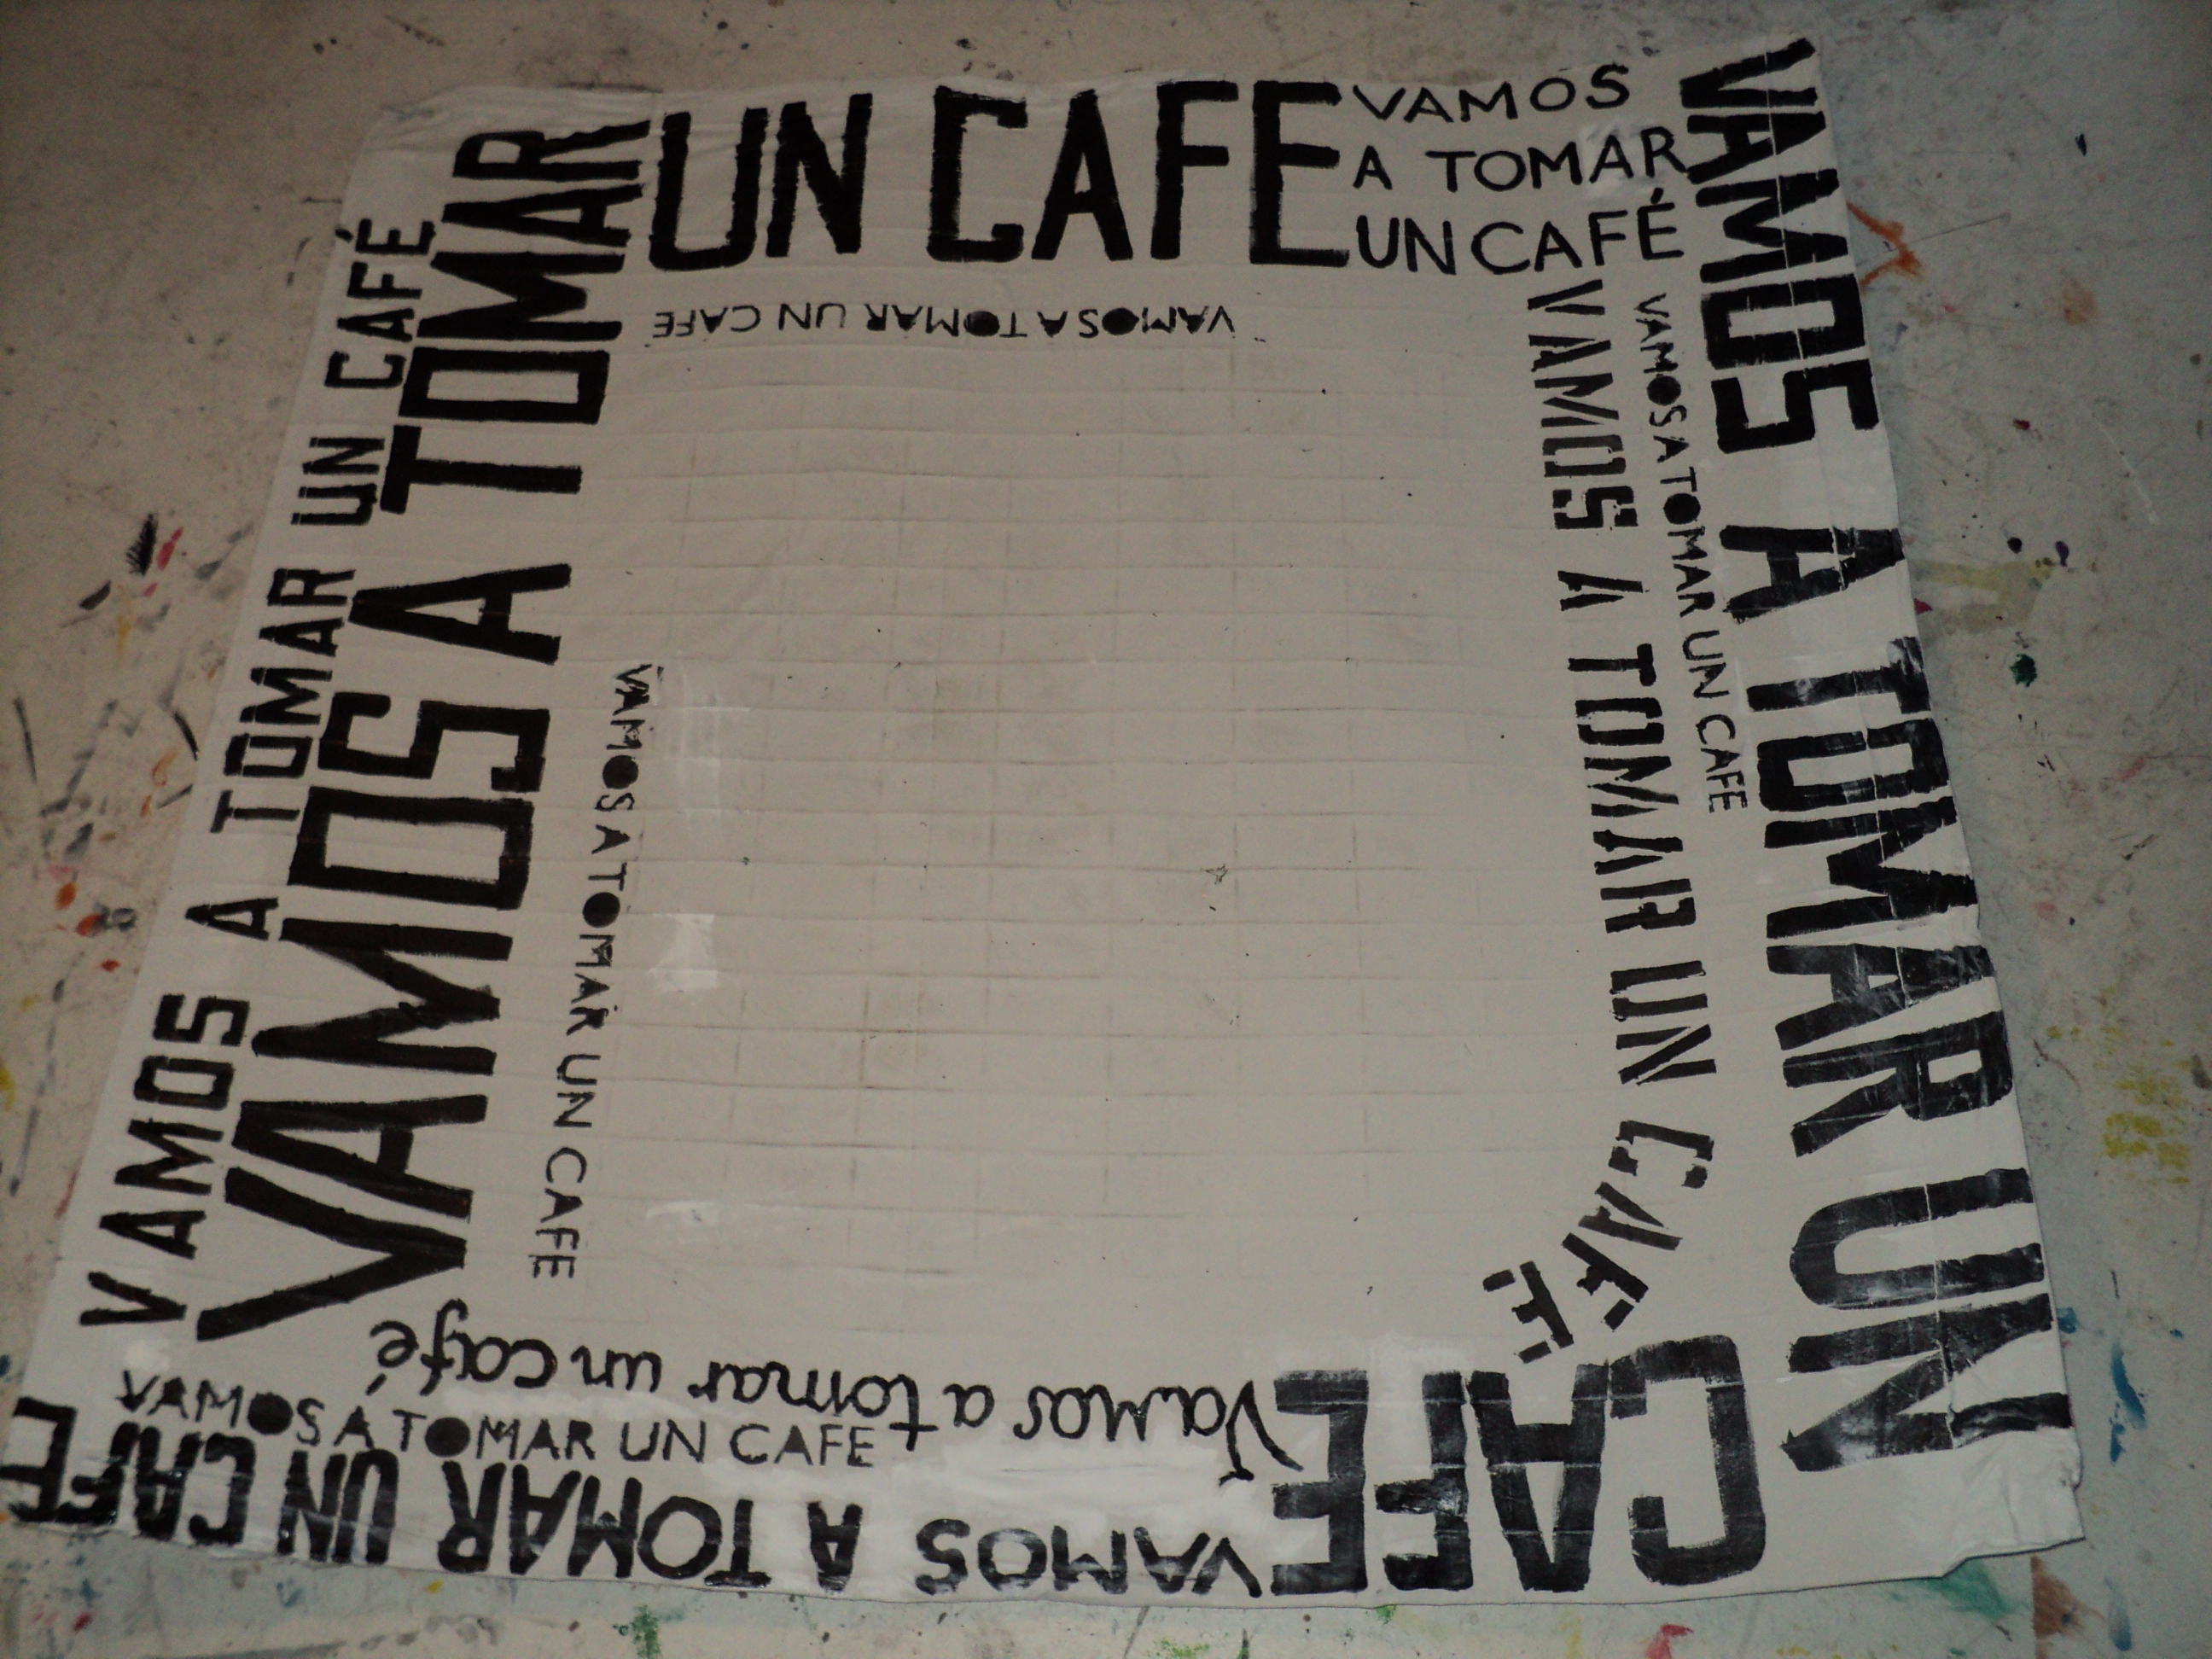 VAMOS A TOMAR UN CAFE
VAMOS
A TOMAR
UN CAFÉ
VAMOS A TOMAR UN CAFÉ
VAMOS A TOMAR UN CAFE
VAMOS A TOMAR UN CAFE
VAMOS A TOMAR UN CAFE
VAMOS A TOMAR UN CAFÉ
VAMOS A TOMAR UN CAFE
Vamos a tomar un café
VAMOS A TOMAR UN CAFE
VAMOS A TOMAR UN CAFE